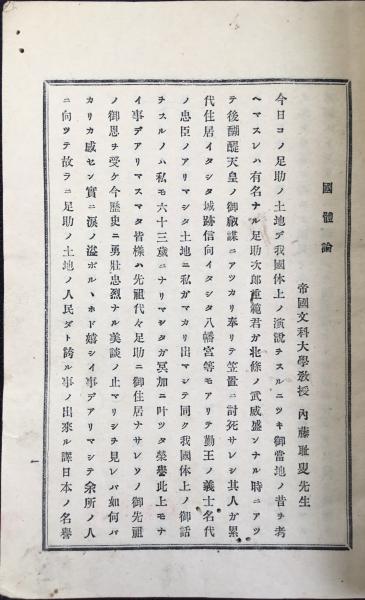 國體論
帝國文科大學敎授 內藤耻叟先生
今日コノ足助ノ土地デ我國体上ノ演說ヲスルニツキ御當地ノ昔ヲ考
ヘマスレハ有名ナル足助次郎重範君ガ北條ノ武威盛ンナル時ニアツ
テ後醍醐天皇ノ御叡謀ニアツカリ奉リテ笠置ニ討死サレシ其人ガ累
代住居イタシタ城跡信向イタシタ八幡宮等モアリテ勤王ノ義士名代
ノ忠臣ノアリマシタ土地ニ私ガマカリ出マシテ同ク我國体上ノ御話
ヲスルノハ私モ六十三歲ニナリマシタガ冥加ニ叶ツタ榮譽此上モナ
イ事デアリマスマタ皆樣ハ先祖代々足助ニ御住居ナサレソノ御先祖
ノ御恩ヲ受ケ今歷史ニ勇壯忠烈ナル美談ノ止マリシヲ見レバ如何バ
カリカ感セン實ニ淚ノ溢ボルヽホド嬉シイ事デアリマシテ余所ノ人
ニ向ツテ故ラニ足助ノ土地ノ人民ダト誇ル事ノ出來ル譯日本ノ名譽
一